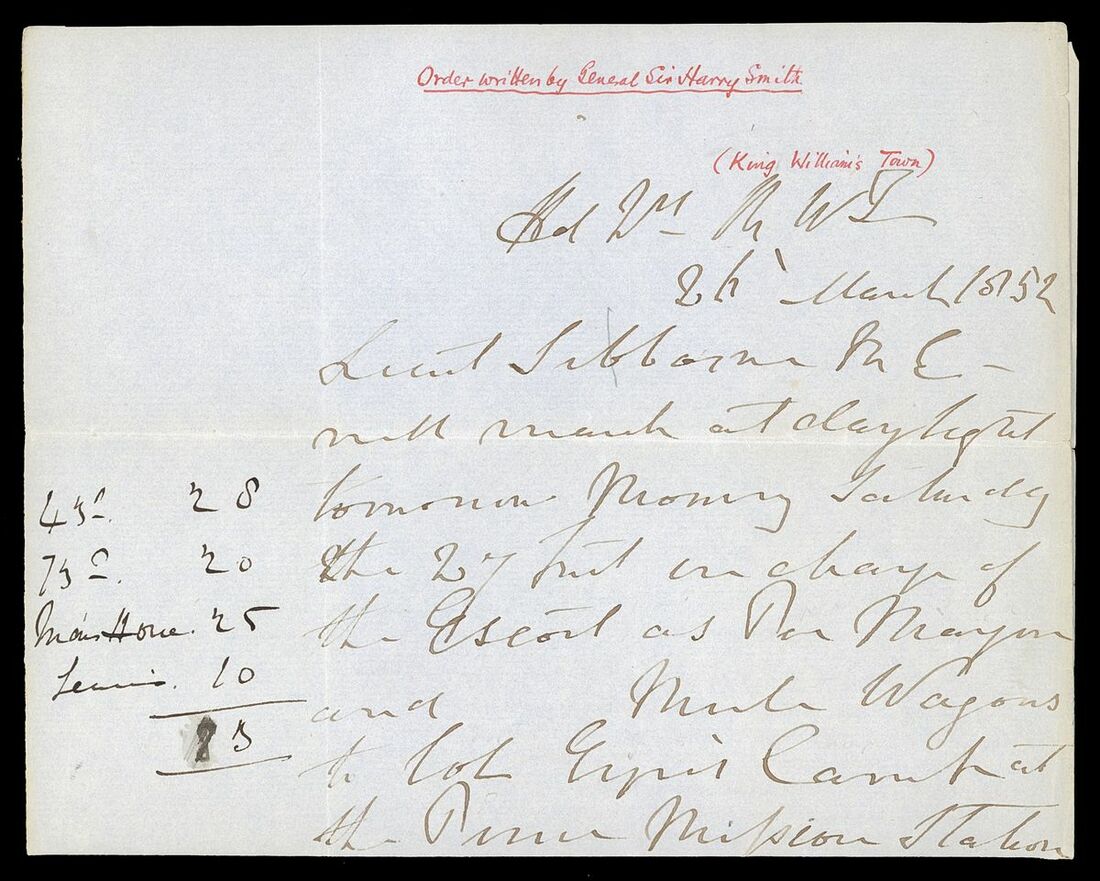 Order written by General Sir Harry Smith
(King William's Town)
Hd Qrs K W T
26 March 1852
Lieut Siborne R E –
will march at daylight
tomorrow Morning Saturday
the 27 Inst in charge of
the Escort as Per Margin
and Mule Wagons
to Col Eyre's Camp at
the Pirie Mission Station
43d. 28
73d. 20
Horse. 25
10
83